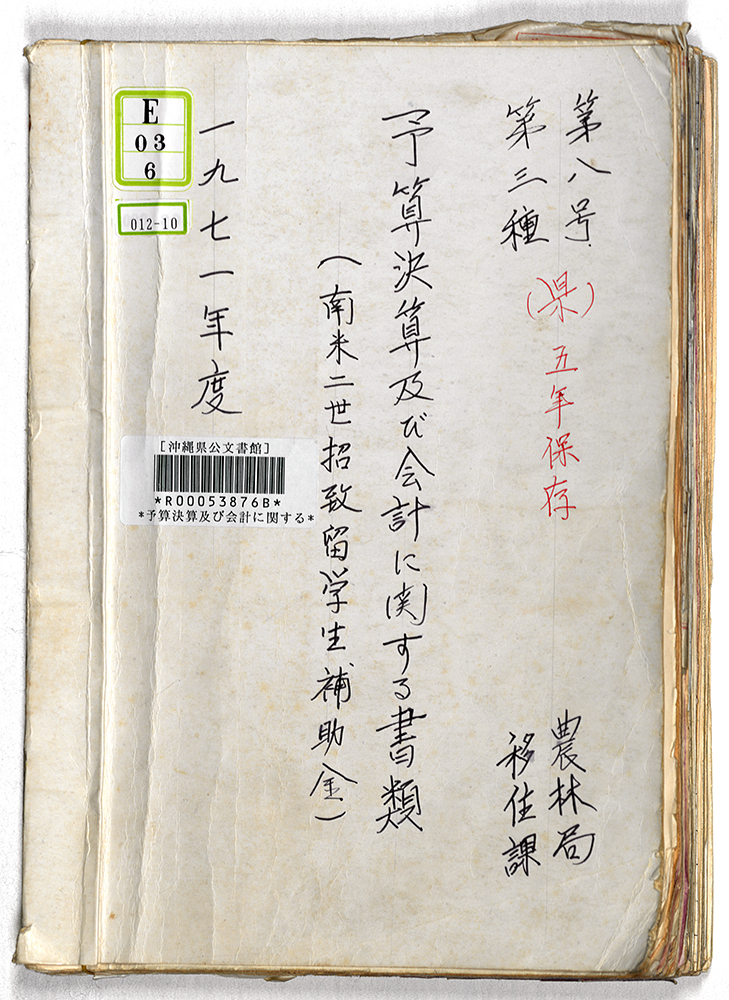 第八号
第三種
(県)五年保存
農林局
移住課
予算決算及び会計に関する書類
(南米二世招致留学生補助金)
一九七一年度
E
03
6
012-10
[沖縄県公文書館]
*R00053876B*
*予算決算及び会計に関する*